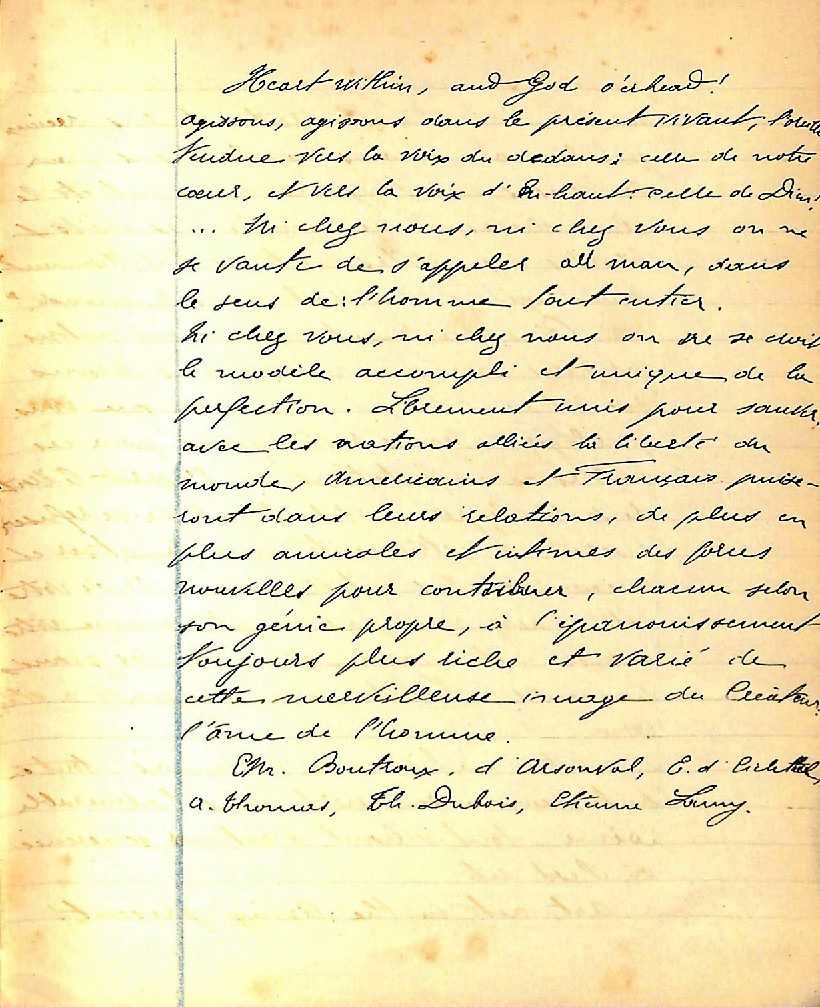 Heart within, and God o'erhead!
agissons, agissons dans le présent vivant, l'oreille
tendue vers la voix du dedans: celle de notre
cœur, et vers la voix d'En-haut: celle de Dieu!
... Ni chez nous, ni chez vous on ne
se vante de s'appeler all man, dans
le sens de: l'homme tout entier.
Ni chez vous, ni chez nous on ne se croit
le modèle accompli et unique de la
perfection. Librement unis pour sauver,
avec les nations alliées la liberté du
monde, Américains et Français puise-
ront dans leurs relations, de plus en
plus amicales et intimes des forces
nouvelles pour contribuer, chacun selon
son génie propre, à l'épanouissement
toujours plus riche et varié de
cette merveilleuse image du Créateur:
l'âme de l'homme.
Em. Boutroux, d'Arsonval, E. d'Eichthal,
A. Thomas, Th. Dubois, Etienne Lamy.